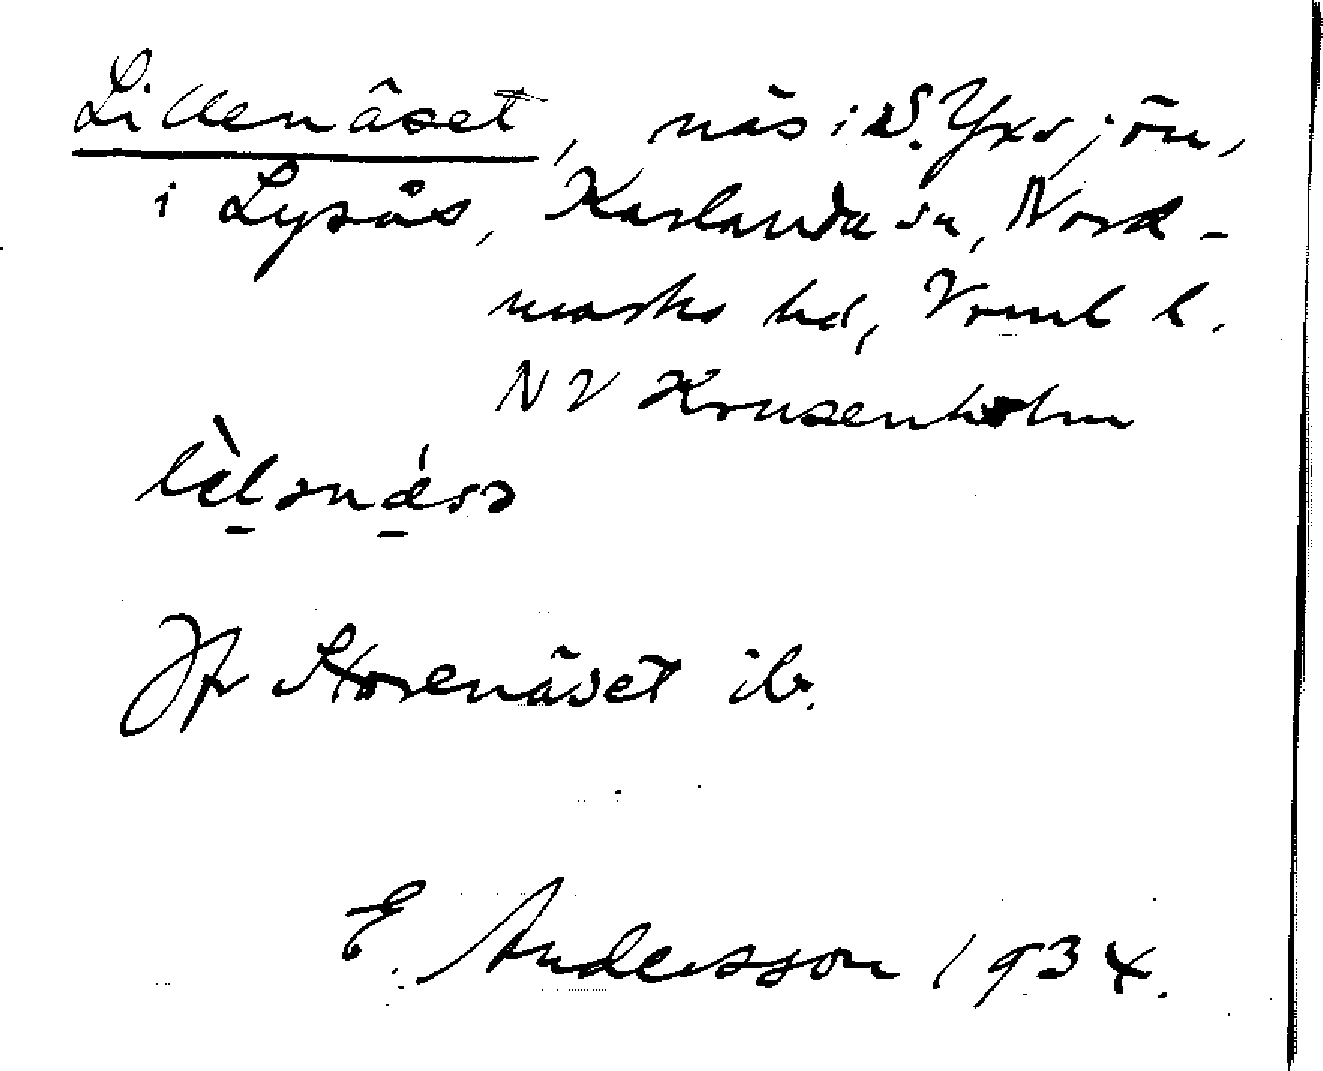 Lillenäset, näs i S. Yxsjön,
i Lysås, Karlanda sn, Nord-
marks hd, Vrml l.
NV Krusenholm
Jfr Storenäset ib.
E. Andersson 1934.